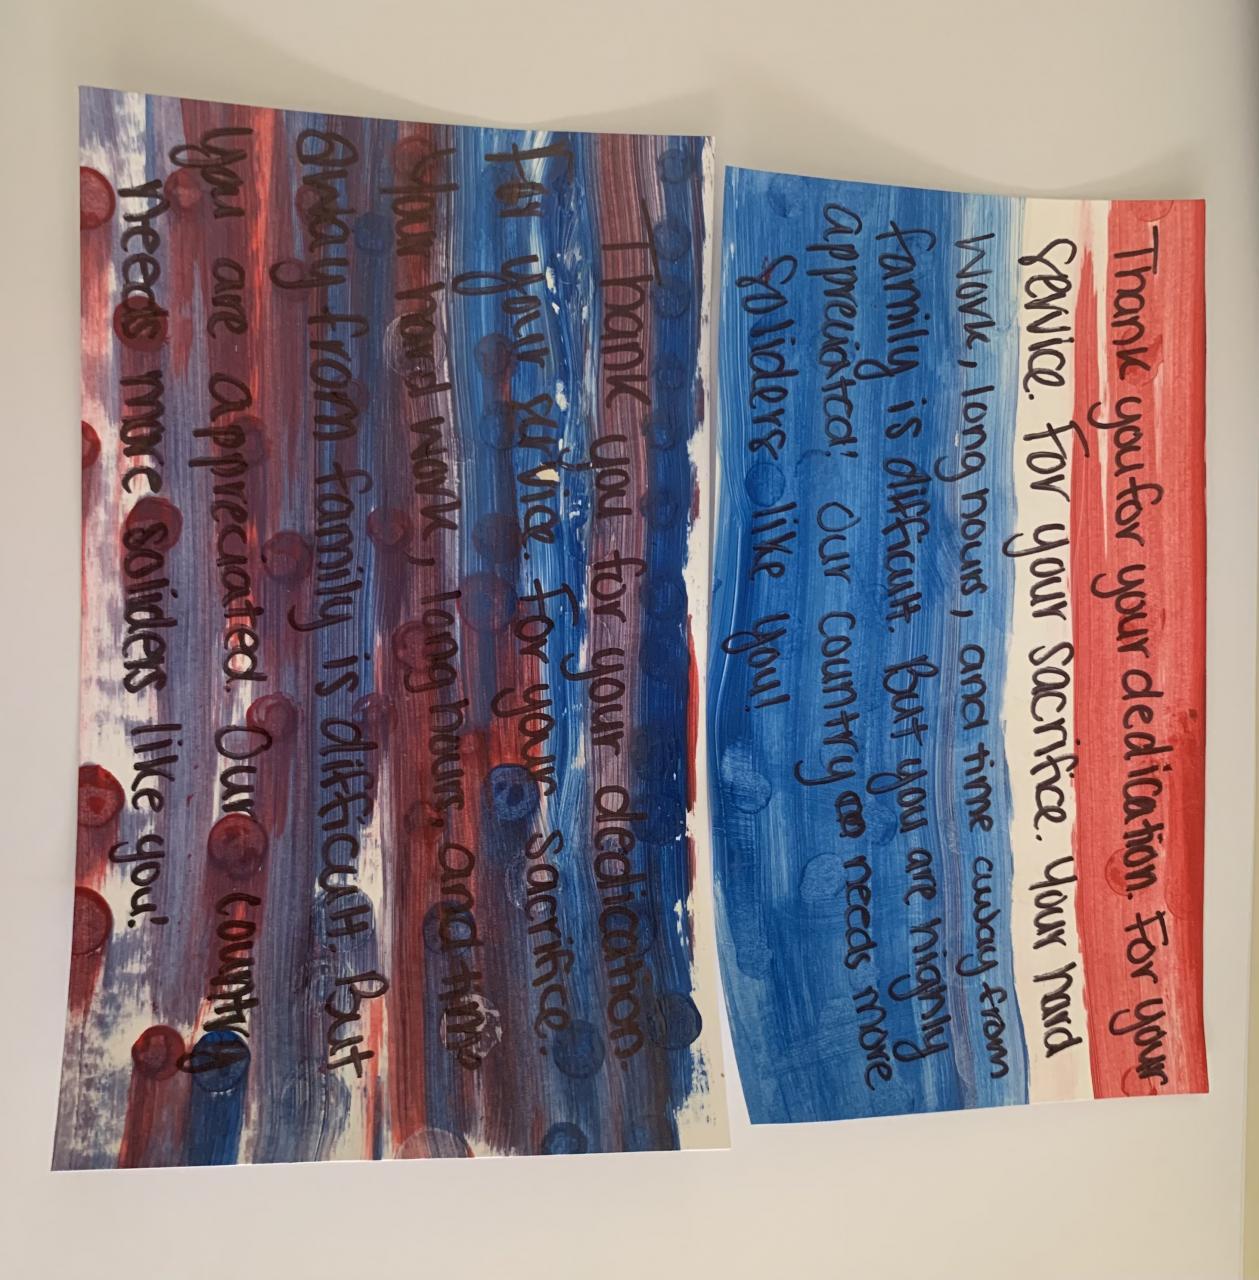 Thank you for your dedication. For your
service. For your sacrifice. Your hard
work, long hours, and time away from
family is difficult. But you are highly
appreciated! Our country needs more
soliders like you!
Thank you for your dedication.
For your service. For your sacrifice.
Your hard work, long hours, and time
away from family is difficult. But
you are appreciated. Our country
needs more soliders like you!